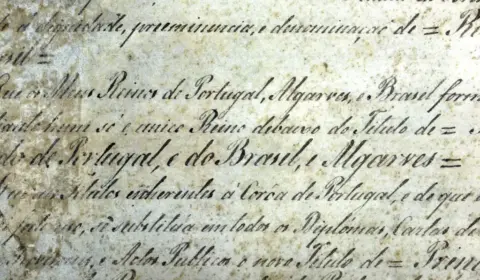 dignidade, preeminencia, e denominação de = Re
asil =
Que os Meus Reinos de Portugal, Algarves, e Brasil form
hum só e unico Reino debaixo do Titulo de =
do de Portugal, e do Brasil, e Algarves =
Titulos inherentes á Coroa de Portugal, e de que
se substitua em todos os Diplomas, Cartas de
e Actos Publicos o novo Titulo de = Princ